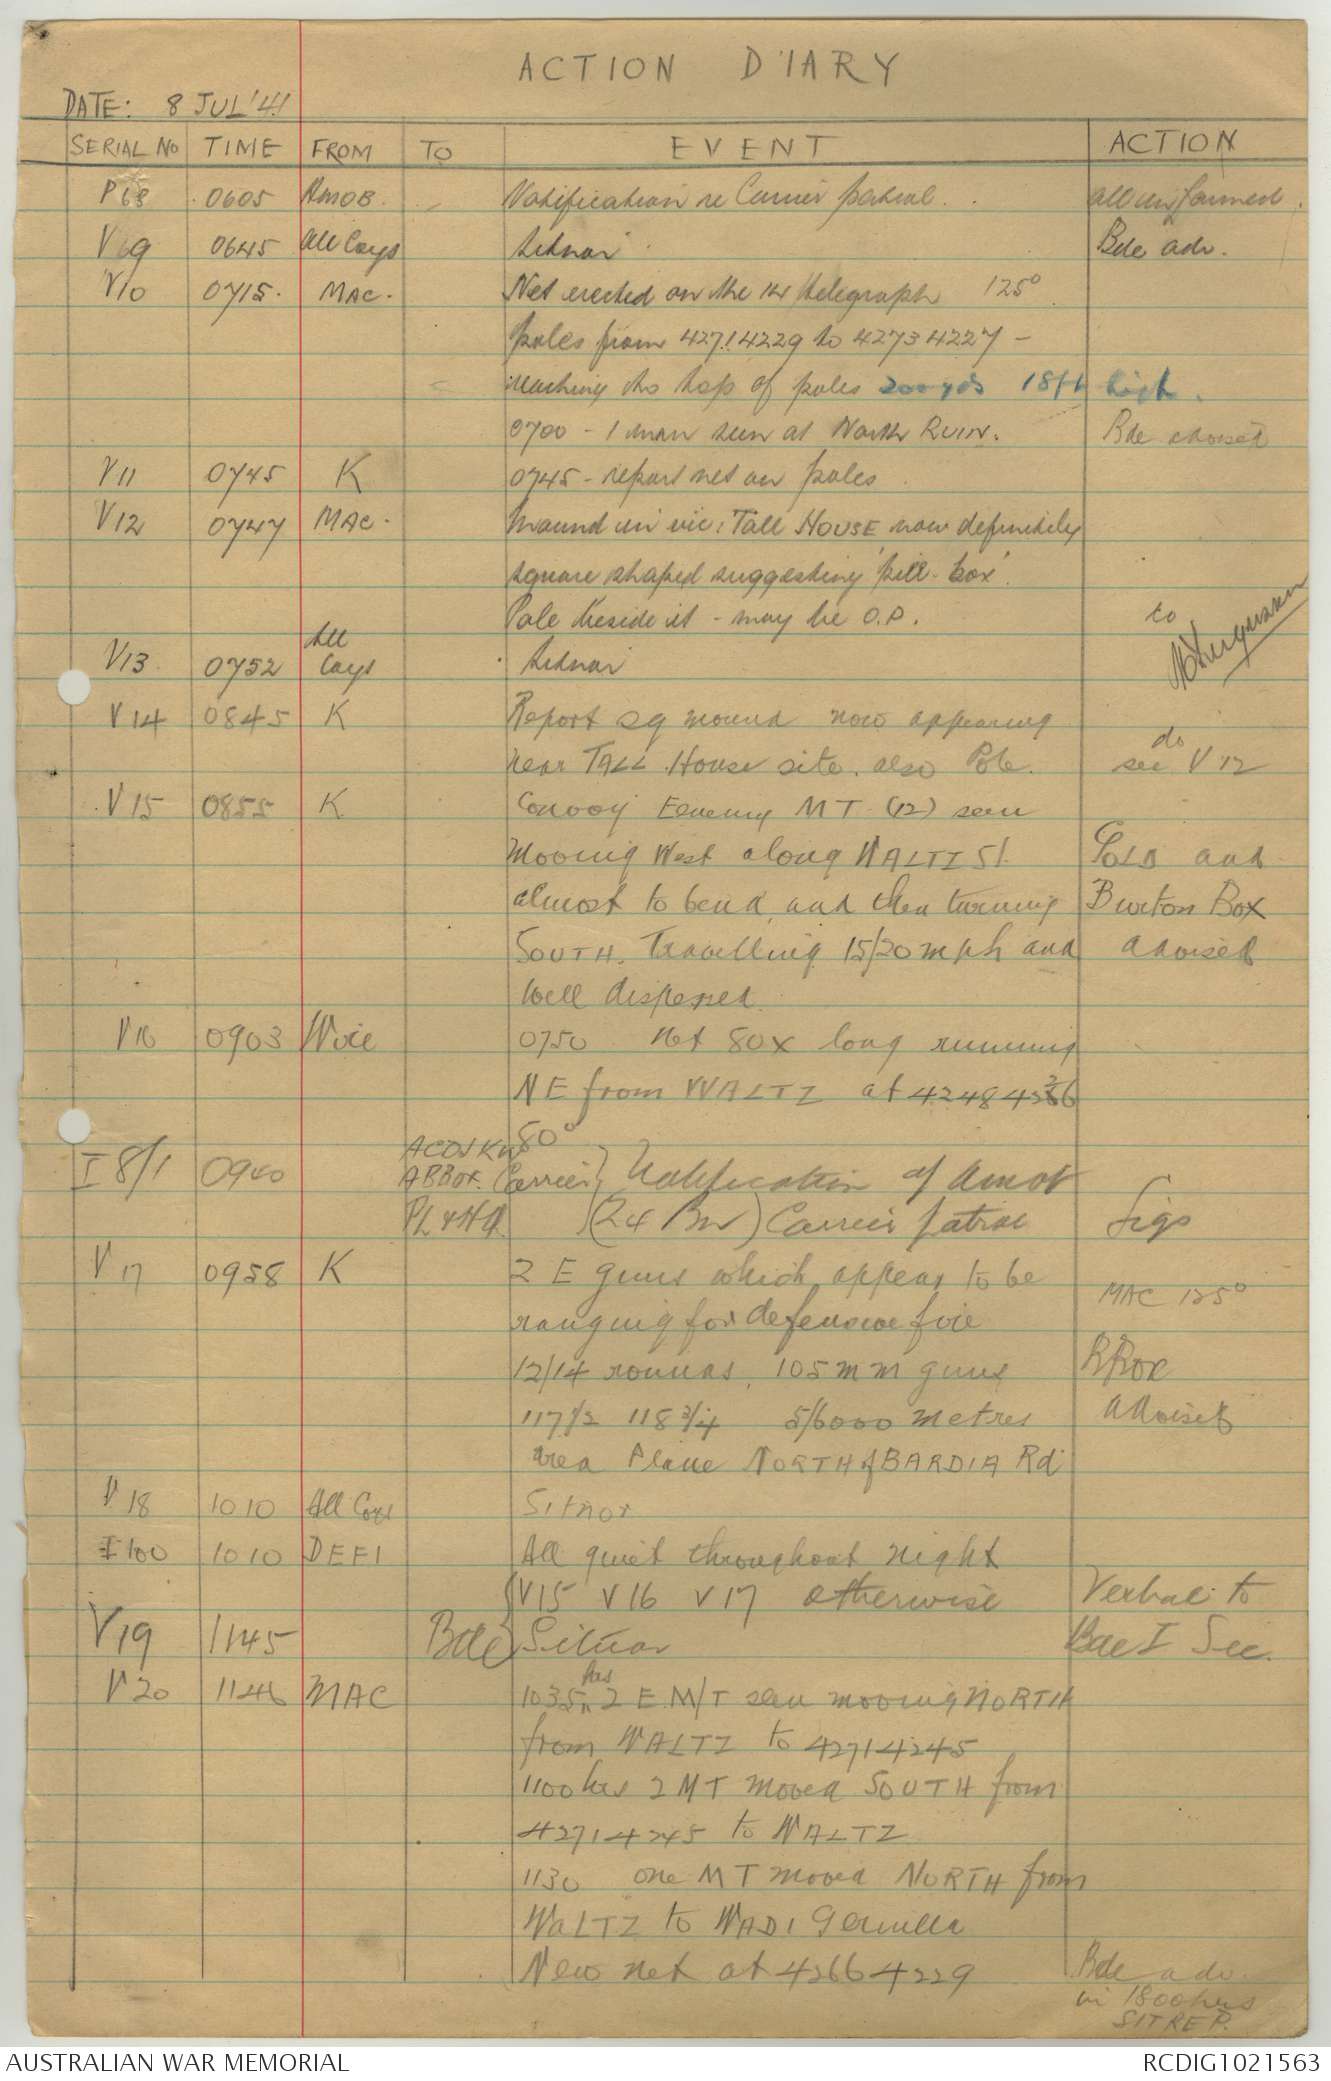 ACTION DIARY
DATE: 8 JUL '41
SERIAL NO TIME FROM TO EVENT ACTION
P68 0605 AMOB. Notification re Carrier patrol. all informed.
V69 0645 All Coys Sitnor Bde adv.
V10 0715. MAC. Net erected on the 14 telegraph 125°
poles from 42714229 to 42734227 -
reaching to top of poles 200 yds 18ft high.
0700 - 1 man seen at North RUIN. Bde advised
V11 0745 K 0745 - report net on poles
V12 0747 MAC. Mound in vic: TALL HOUSE now definitely
square shaped suggesting 'pill-box'.
Pole beside it - may be O.P. to
V13 0752 All Coys Sitnor
V14 0845 K Report sq mound now appearing
near TALL HOUSE site. also Pole. do see V12
V15 0855 K Convoy Enemy MT (12) seen
moving West along WALTZ 51 GOLD and
almost to bend and then turning Burton Box
SOUTH. Travelling 15/20 mph and advised
well dispersed
V16 0903 0750 net 80x long running
NE from WALTZ at 42484266
80°
I 8/1 0940 Carrier} Notification of Amob
PL & HQ (24 Bn) Carrier patrol Sigs
V17 0958 K 2 E guns which appear to be
ranging for defensive fire MAC 125°
12/14 rounds. 105 mm guns
117½ 118¾ 5/6000 metres advised
area Plane NORTH of BARDIA Rd
V18 1010 All Coys Sitnor
I 100 1010 DEF1 All quiet throughout night
V15 V16 V17 otherwise Verbal to
V19 1145 Bde Sitnor Bde I Sec.
V20 1146 MAC 1035 hrs 2 E.M/T seen moving NORTH
from WALTZ to 42714245
1100 hrs 2 MT moved SOUTH from
42714245 to WALTZ
1130 one MT moved NORTH from
WALTZ to WADI
New net at 42664229 Bde adv.
in 1800 hrs
SITREP.
AUSTRALIAN WAR MEMORIAL RCDIG1021563